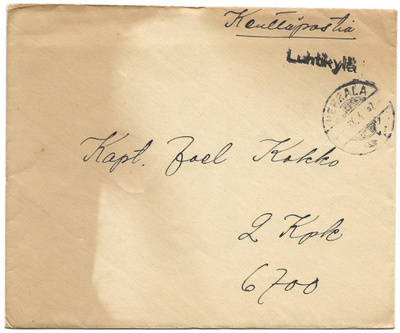 Kenttäpostia
Luhtikylä
Kapt. Joel Kokko
2 Kpk
6700